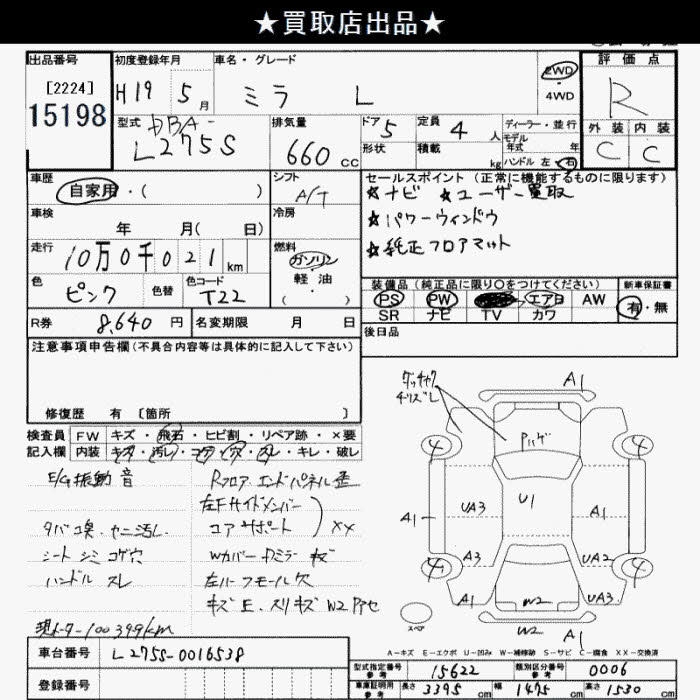 ★買取店出品★
出品番号
[2224]
15198
初度登録年月
H19 5月
車名・グレード
ミラ L
2WD
・
4WD
評価点
R
外装 内装
C C
型式
DBA-
L275S
排気量
660 cc
ドア 5
形状
定員 4 人
積載 kg
ディーラー・並行
モデル
年式 年
ハンドル 左・右
車歴
自家用・( )
シフト
A/T
セールスポイント (正常に機能するものに限ります)
★ナビ ★ユーザー買取
★パワーウィンドウ
★純正フロアマット
車検
年 月( 日)
冷房
走行
10万0千021km
燃料
ガソリン
軽・油
・( )
色
ピンク
色替
色コード
T22
装備品 (純正品に限り〇をつけてください)
PS PW エアB AW
SR ナビ TV カワ
新車保証書
有・無
R券 8,640 円
名変期限 月 日
後日品
注意事項申告欄 (不具合内容等は具体的に記入して下さい)
修復歴 有 [箇所 ]
検査員 FW キズ・飛石・ヒビ割・リペア跡・×要
記入欄 内装 キズ・汚レ・コゲ・穴・スレ・キレ・破レ
E/G振動 音
Rフロア エンドパネル歪
左Fサイドメンバー
タバコ臭 ヤニ汚レ
コアサポート XX
シート シミ コゲ穴
Wカバー Dミラー キズ
ハンドル スレ
キズ E スリキズ W2
現メーター100399km
A1
4 4
UA3 U1 A1
A1
A3 UA2
4 4
A1 W2 UA3
スペア
W2 A1
A-キズ E-エクボ U-凹み W-補修跡 S-サビ C-腐食 XX-交換済
車台番号 L275S-0016538
登録番号
型式指定番号 参考 15622 類別区分番号 参考 0006
車庫証明用 参考 長さ 3395 cm 幅 1475 cm 高さ 1530 cm